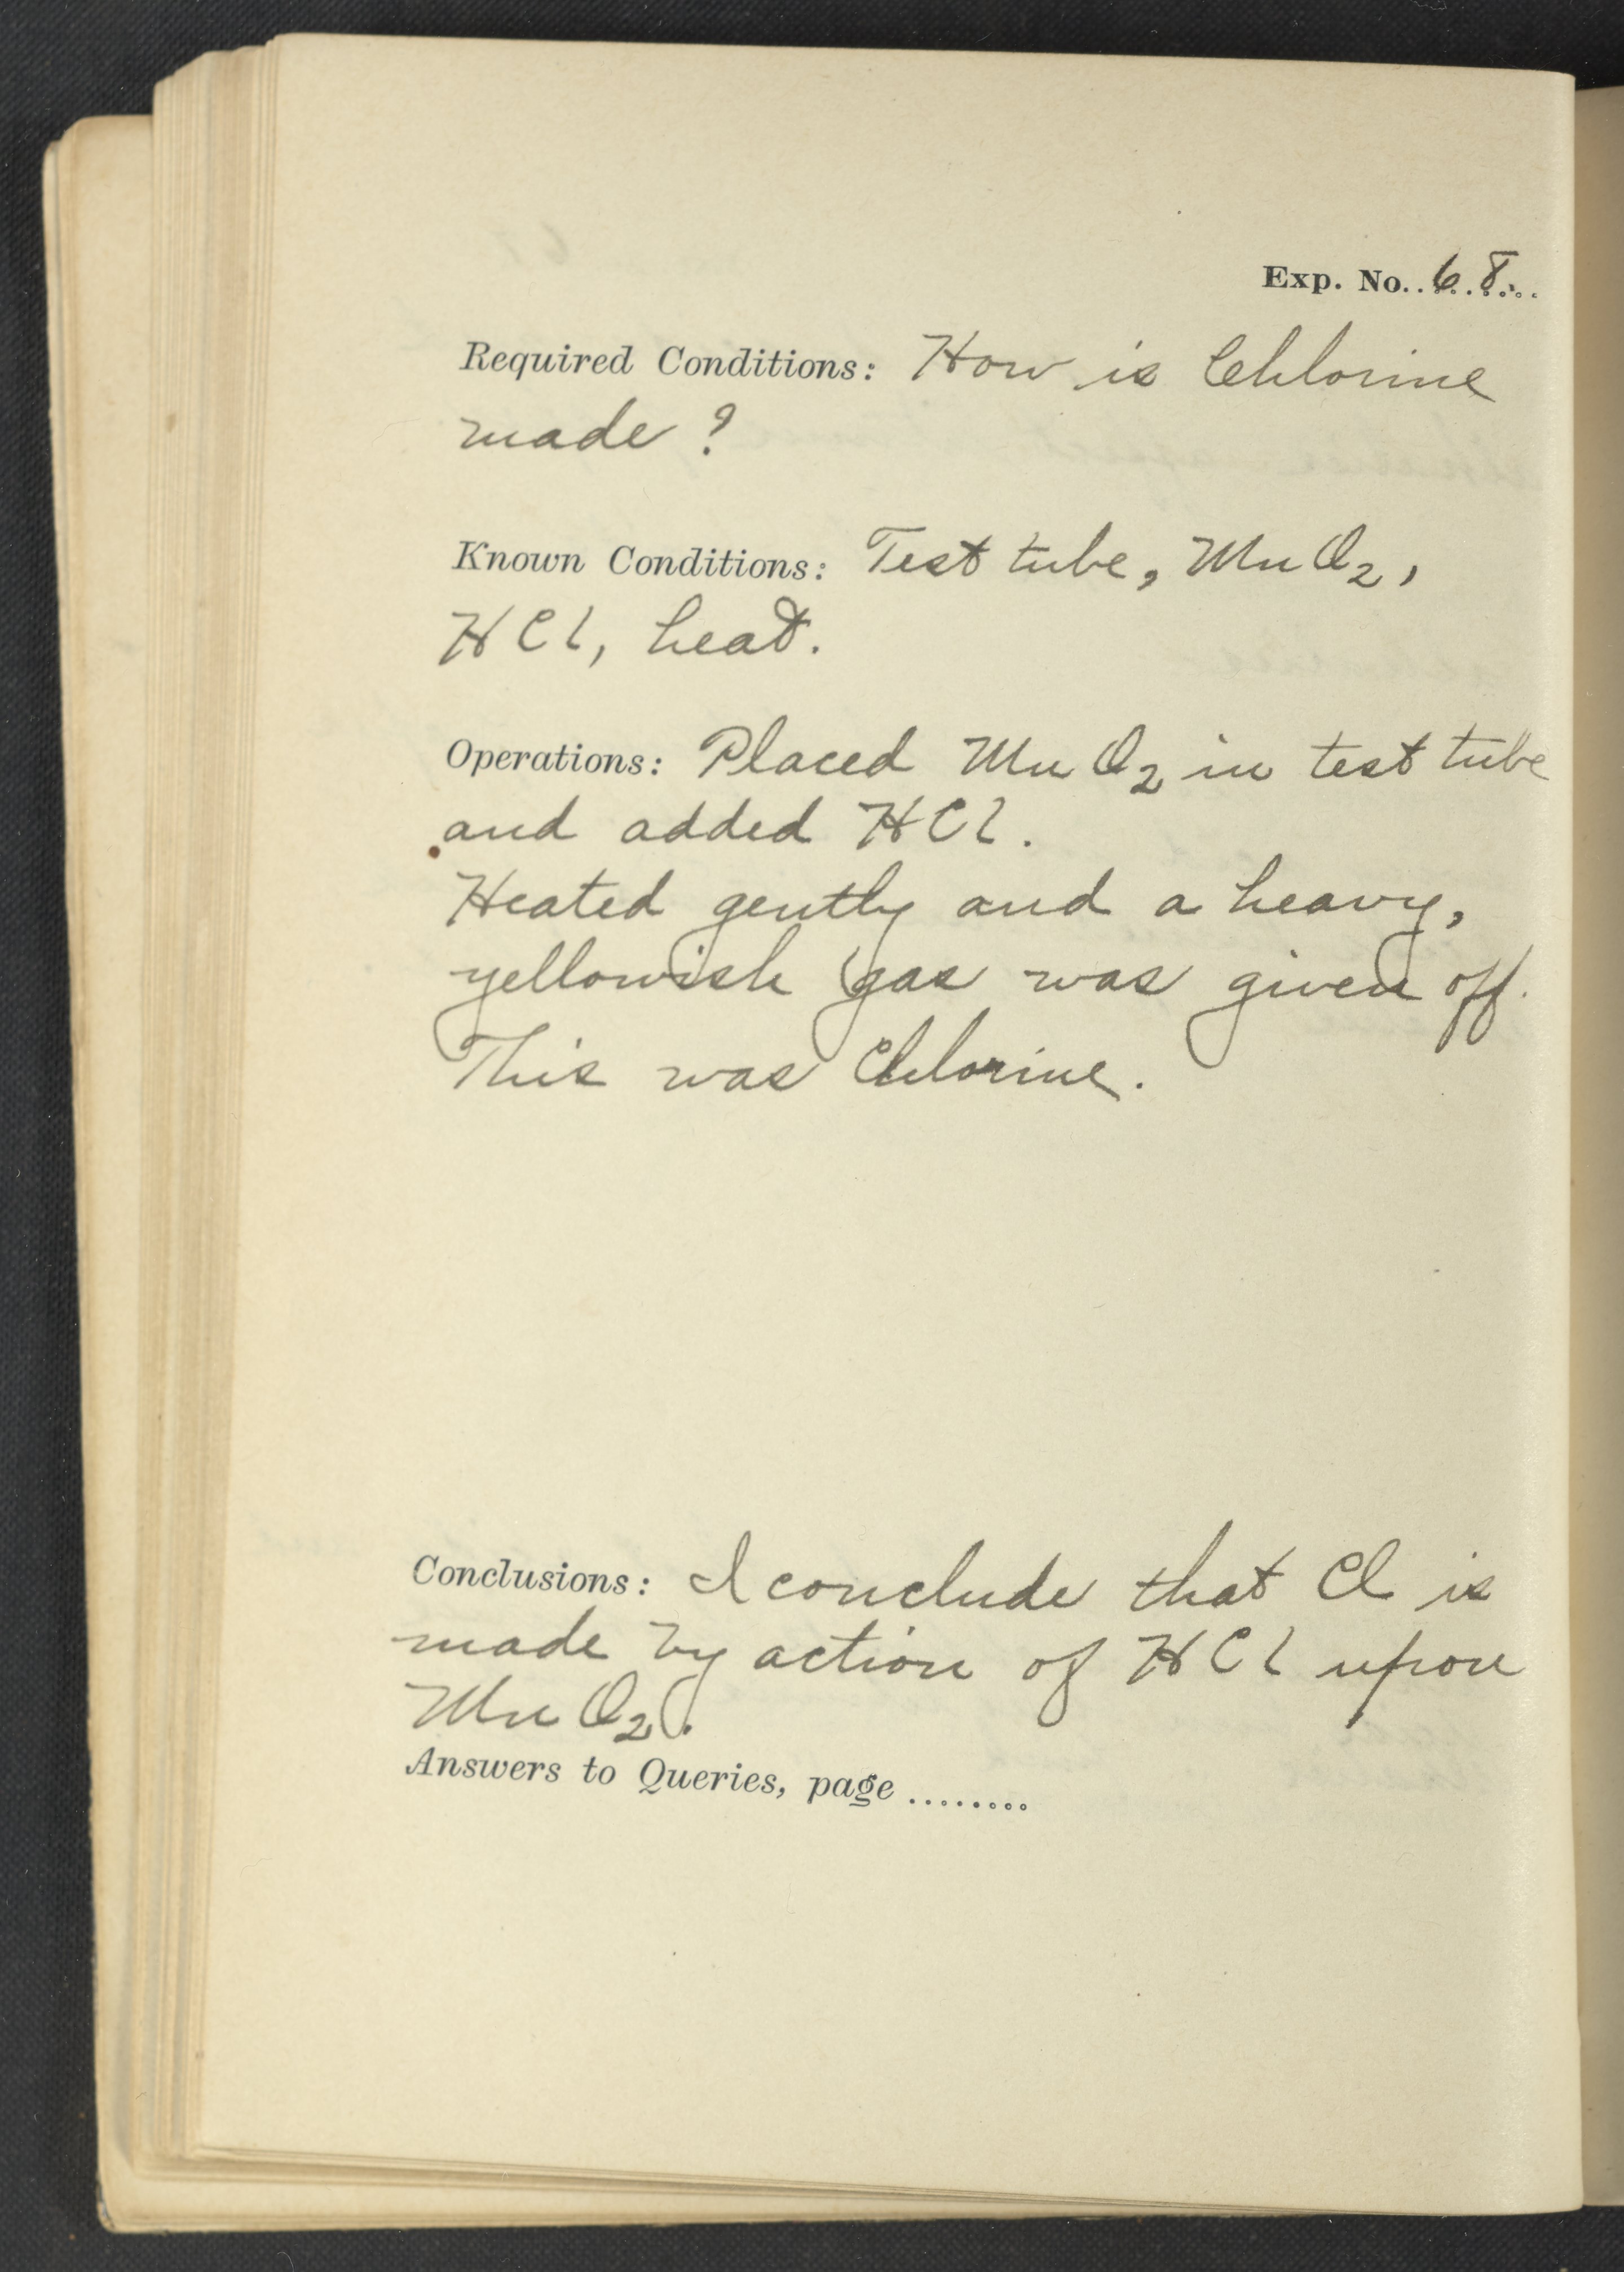 Exp. No. 68
Required Conditions: How is Chlorine
made?
Known Conditions: Test tube, MnO₂,
HCl, heat.
Operations: Placed MnO₂ in test tube
and added HCl.
Heated gently and a heavy,
yellowish gas was given off.
This was Chlorine.
Conclusions: I conclude that Cl is
made by action of HCl upon
MnO₂.
Answers to Queries, page ........